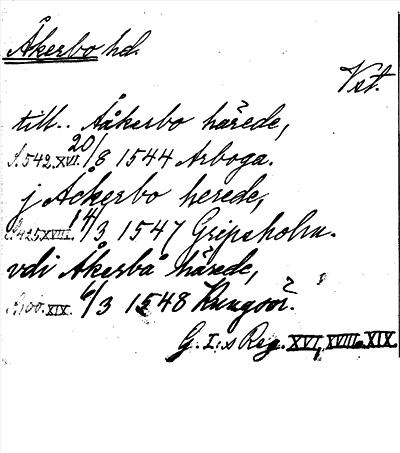 Åkerbo hd.
Vst.
till.. Ååkerbo härede,
S. 542. XVI. 20/8 1544 Arboga.
j Åckerbo herede,
S. 425. XVIII. 14/3 1547 Gripsholm.
vdi Åkerbä härede,
S. 100. XIX. 6/3 1548 Kungöör.
G. I:s Reg. XVI, XVIII. XIX.